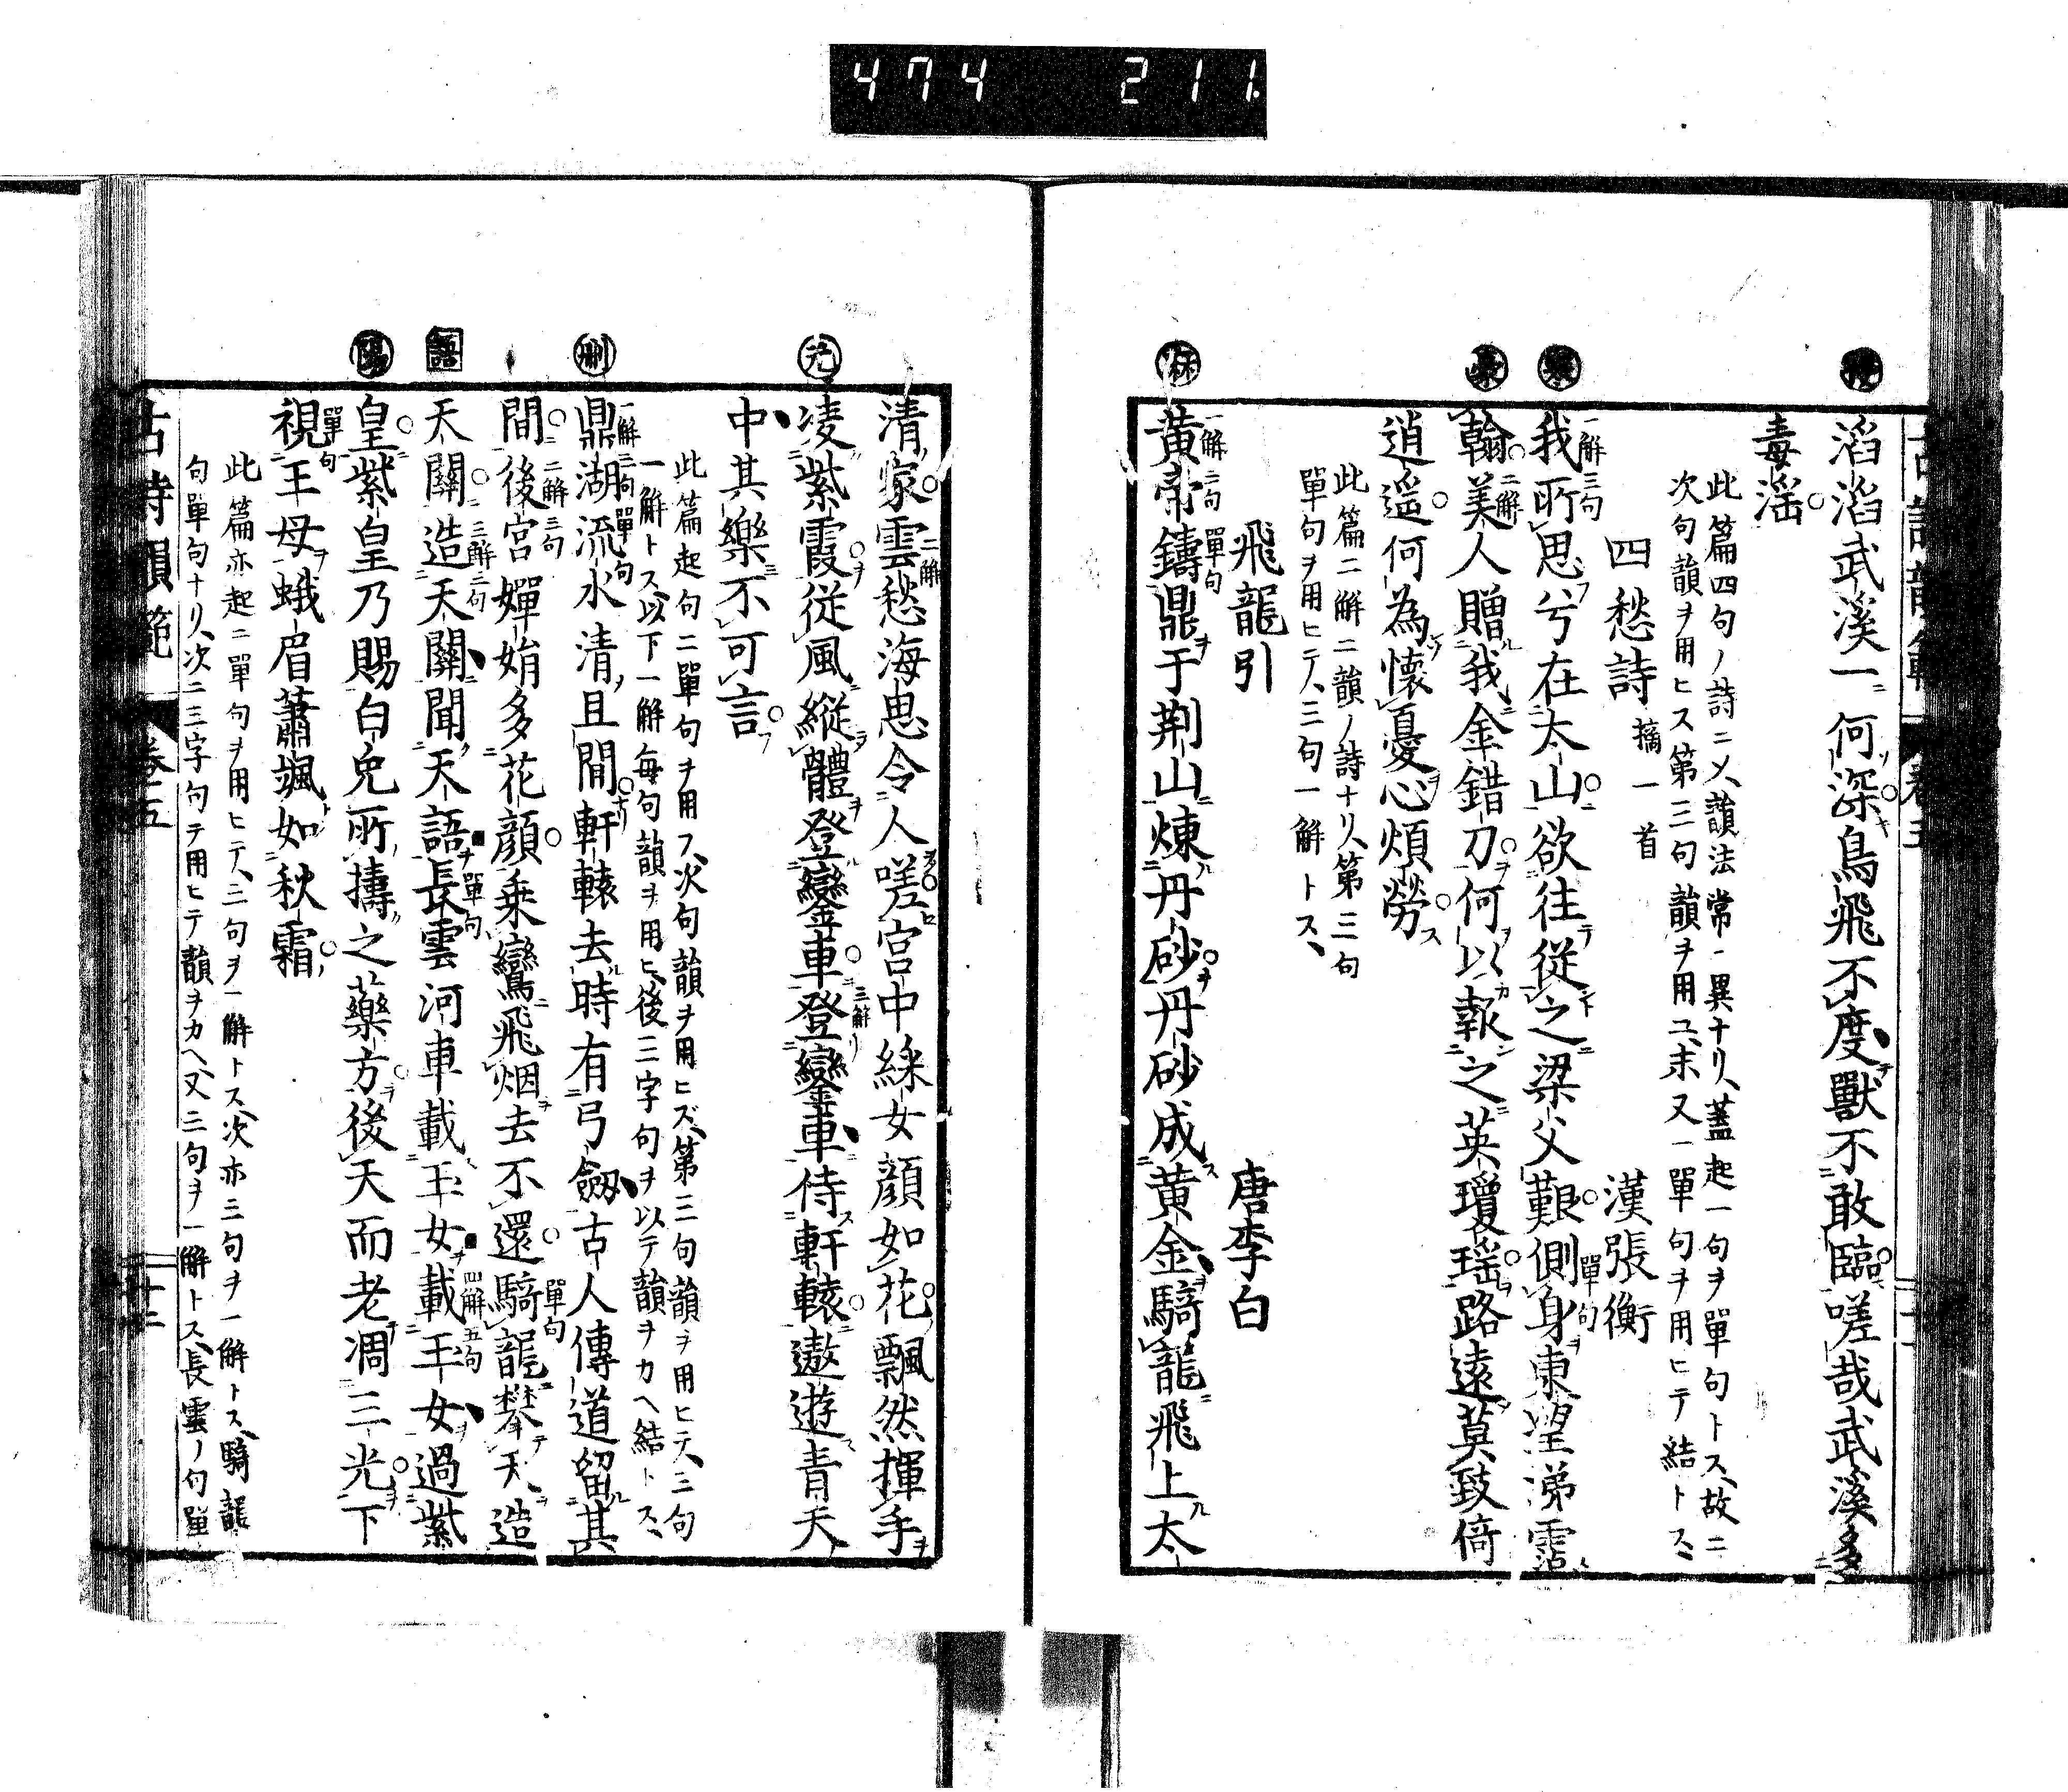 474 211
滔滔武溪一何深鳥飛不度獸不敢臨嗟哉武溪多
毒滛
此篇四句ノ詩ニメ韻法常ニ異ナリ、蓋起一句ヲ單句トス、故ニ二
次句韻ヲ用ヒス第三句韻ヲ用ユ、末又一單句ヲ用ヒテ結トス、
四愁詩 摘一首 漢張衡
一解三句
我所思兮在太山欲往從之梁父艱側身東望涕霑
單句
翰美人贈我金錯刀何以報之英瓊瑶路遠莫致倚
二解
逍遥何為懷憂心煩勞
此篇二解二韻ノ詩ナリ、第三句
單句ヲ用ヒテ、三句一解トス、
飛龍引 唐李白
麻
一解二句 單句
黄帝鑄鼎于荆山煉丹砂丹砂成黄金騎龍飛上太
清家雲愁海思令人嗟宮中綵女顔如花飄然揮手
二解
元
凌紫霞從風縱體登鑾車登鑾車侍軒轅遨遊青天
三解
中其樂不可言
此篇起句二單句ヲ用フ、次句韻ヲ用ヒズ、第三句韻ヲ用ヒテ、三句
一解トス、以下一解毎句韻ヲ用ヒ、後三字句ヲ以テ韻ヲカヘ結トス、
刪
一解二句 單句
鼎湖流水清且閒軒轅去時有弓劔古人傳道留其
間後宮嬋娟多花顔乗鸞飛烟去不還騎龍攀天造
二解三句 單句
語
天關造天關聞天語長雲河車載玉女載玉女過紫
三解三句 單句 四解五句
陽
皇紫皇乃賜白兔所擣之藥方後天而老凋三光下
視王母蛾眉蕭颯如秋霜
單句
此篇亦起ニ單句ヲ用ヒテ、二句ヲ一解トス、次亦三句ヲ一解トス、騎龍
句單句ナリ、次ニ三字句ヲ用ヒテ韻ヲカヘ、又二句ヲ一解トス、長雲ノ句單
古詩韻範 卷五